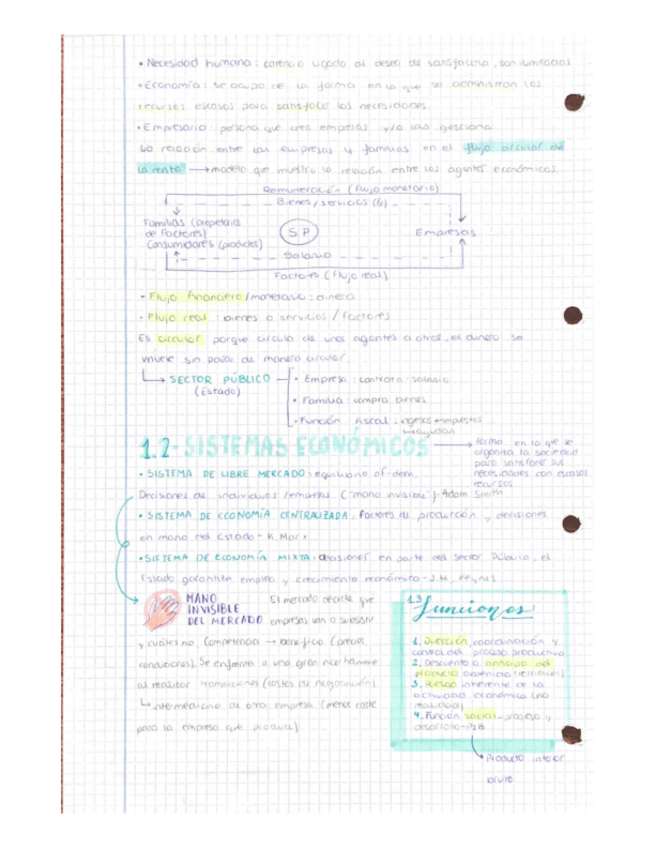 • Necesidad humana: carencia ligada al deseo de satisfacerla, son ilimitadas
• Economía: se ocupa de la forma en la que se administran los
recursos escasos para satisfacer las necesidades.
• Empresario: persona que crea empresas y/o las gestiona
La relación entre las empresas y familias en el flujo circular de
la renta → modelo que muestra la relación entre los agentes económicos.
Remuneración (flujo monetario)
Bienes/servicios (6)
Familias (propietarias
de factores)
Consumidores (productos)
S.P
Empresas
Salario
Factores (flujo real)
• Flujo financiero/monetario: dinero
• Flujo real: bienes o servicios / factores
Es circular porque circula de unos agentes a otros, el dinero se
mueve sin parar de manera circular.
SECTOR PÚBLICO
(Estado)
• Empresa: contrata-salario
• Familia: compra bienes
• Función fiscal: ingresos-impuestos
ayudan
1.2- SISTEMAS ECONÓMICOS
→ forma en la que se
organiza la sociedad
para satisfacer sus
necesidades con escasos
recursos
• SISTEMA DE LIBRE MERCADO: equilibrio of-dem.
Decisiones de individuos/empresas ("mano invisible")- Adam Smith
• SISTEMA DE ECONOMÍA CENTRALIZADA: factores de producción y decisiones
en mano del Estado - K. Marx
• SISTEMA DE ECONOMÍA MIXTA: decisiones en parte del Sector Público, el
Estado garantiza empleo y crecimiento económico - J.M. Keynes
MANO
INVISIBLE
DEL MERCADO
El mercado decide que
empresas van a subsistir
y cuáles no. Competencia → beneficio (precios,
condiciones). Se enfrenta a una gran incertidumbre
al realizar transacciones (costes de negociación)
↳ intermediario de otra empresa (menor coste
para la empresa que produce)
1.3
Funciones
1. Dirección, coordinación y
control del proceso productivo
2. Descuento o anticipo del
producto obtenido
3. Riesgo inherente de la
actividad económica (no
realidad)
4. Función social-progreso y
desarrollo-PIB
Producto interior
bruto